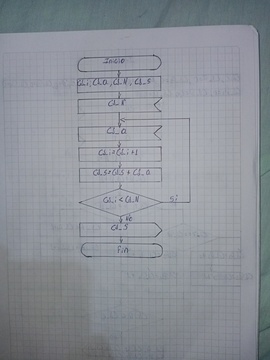 Inicio
CL_i, CL_a, CL_N, CL_S
CL_N
CL_a
CL_i=CL_i+1
CL_S=CL_S+CL_a
CL_i<CL_N
Si
No
CL_S
Fin